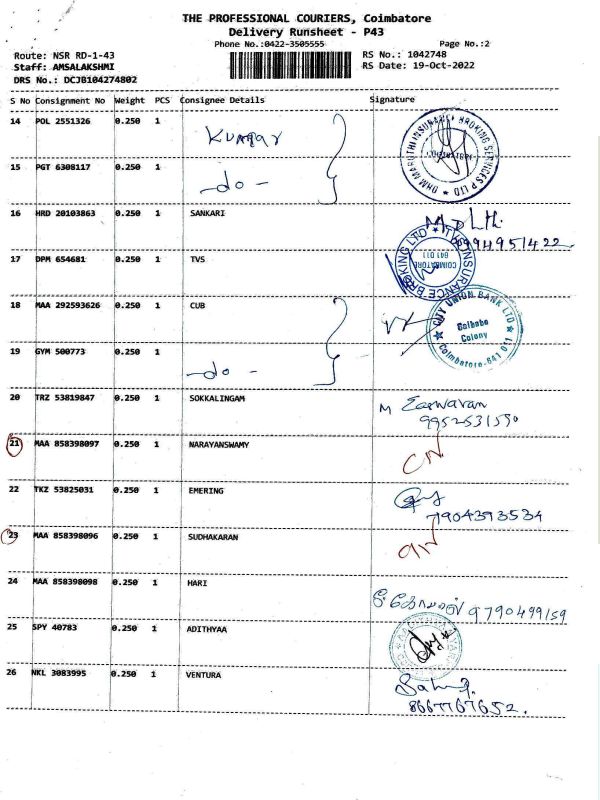 THE PROFESSIONAL COURIERS, Coimbatore
Delivery Runsheet - P43
Phone No.:0422-3505555 Page No.:2
Route: NSR RD-1-43 RS No.: 1042748
Staff: AMSALAKSHMI RS Date: 19-Oct-2022
DRS No.: DCJB104274802
S No Consignment No Weight PCS Consignee Details Signature
14 POL 2551326 0.250 1 Kumar
15 PGT 6308117 0.250 1 -do-
OHM MARUTHI INSURANCE BROKING SERVICES P LTD
16 HRD 20103863 0.250 1 SANKARI
17 DPM 654681 0.250 1 TVS
INSURANCE BROKING LTD
COIMBATORE
641 011
18 MAA 292593626 0.250 1 CUB
CITY UNION BANK LTD
Saibaba
Colony
Coimbatore-641 011
19 GYM 500773 0.250 1 -do-
20 TRZ 53819847 0.250 1 SOKKALINGAM M Easwaran
9952531590
21 MAA 858398097 0.250 1 NARAYANSWAMY CN
22 TKZ 53825031 0.250 1 EMERING
7904393534
23 MAA 858398096 0.250 1 SUDHAKARAN
24 MAA 858398098 0.250 1 HARI 9790499159
25 SPY 40783 0.250 1 ADITHYAA
26 NKL 3083995 0.250 1 VENTURA
8667767652.